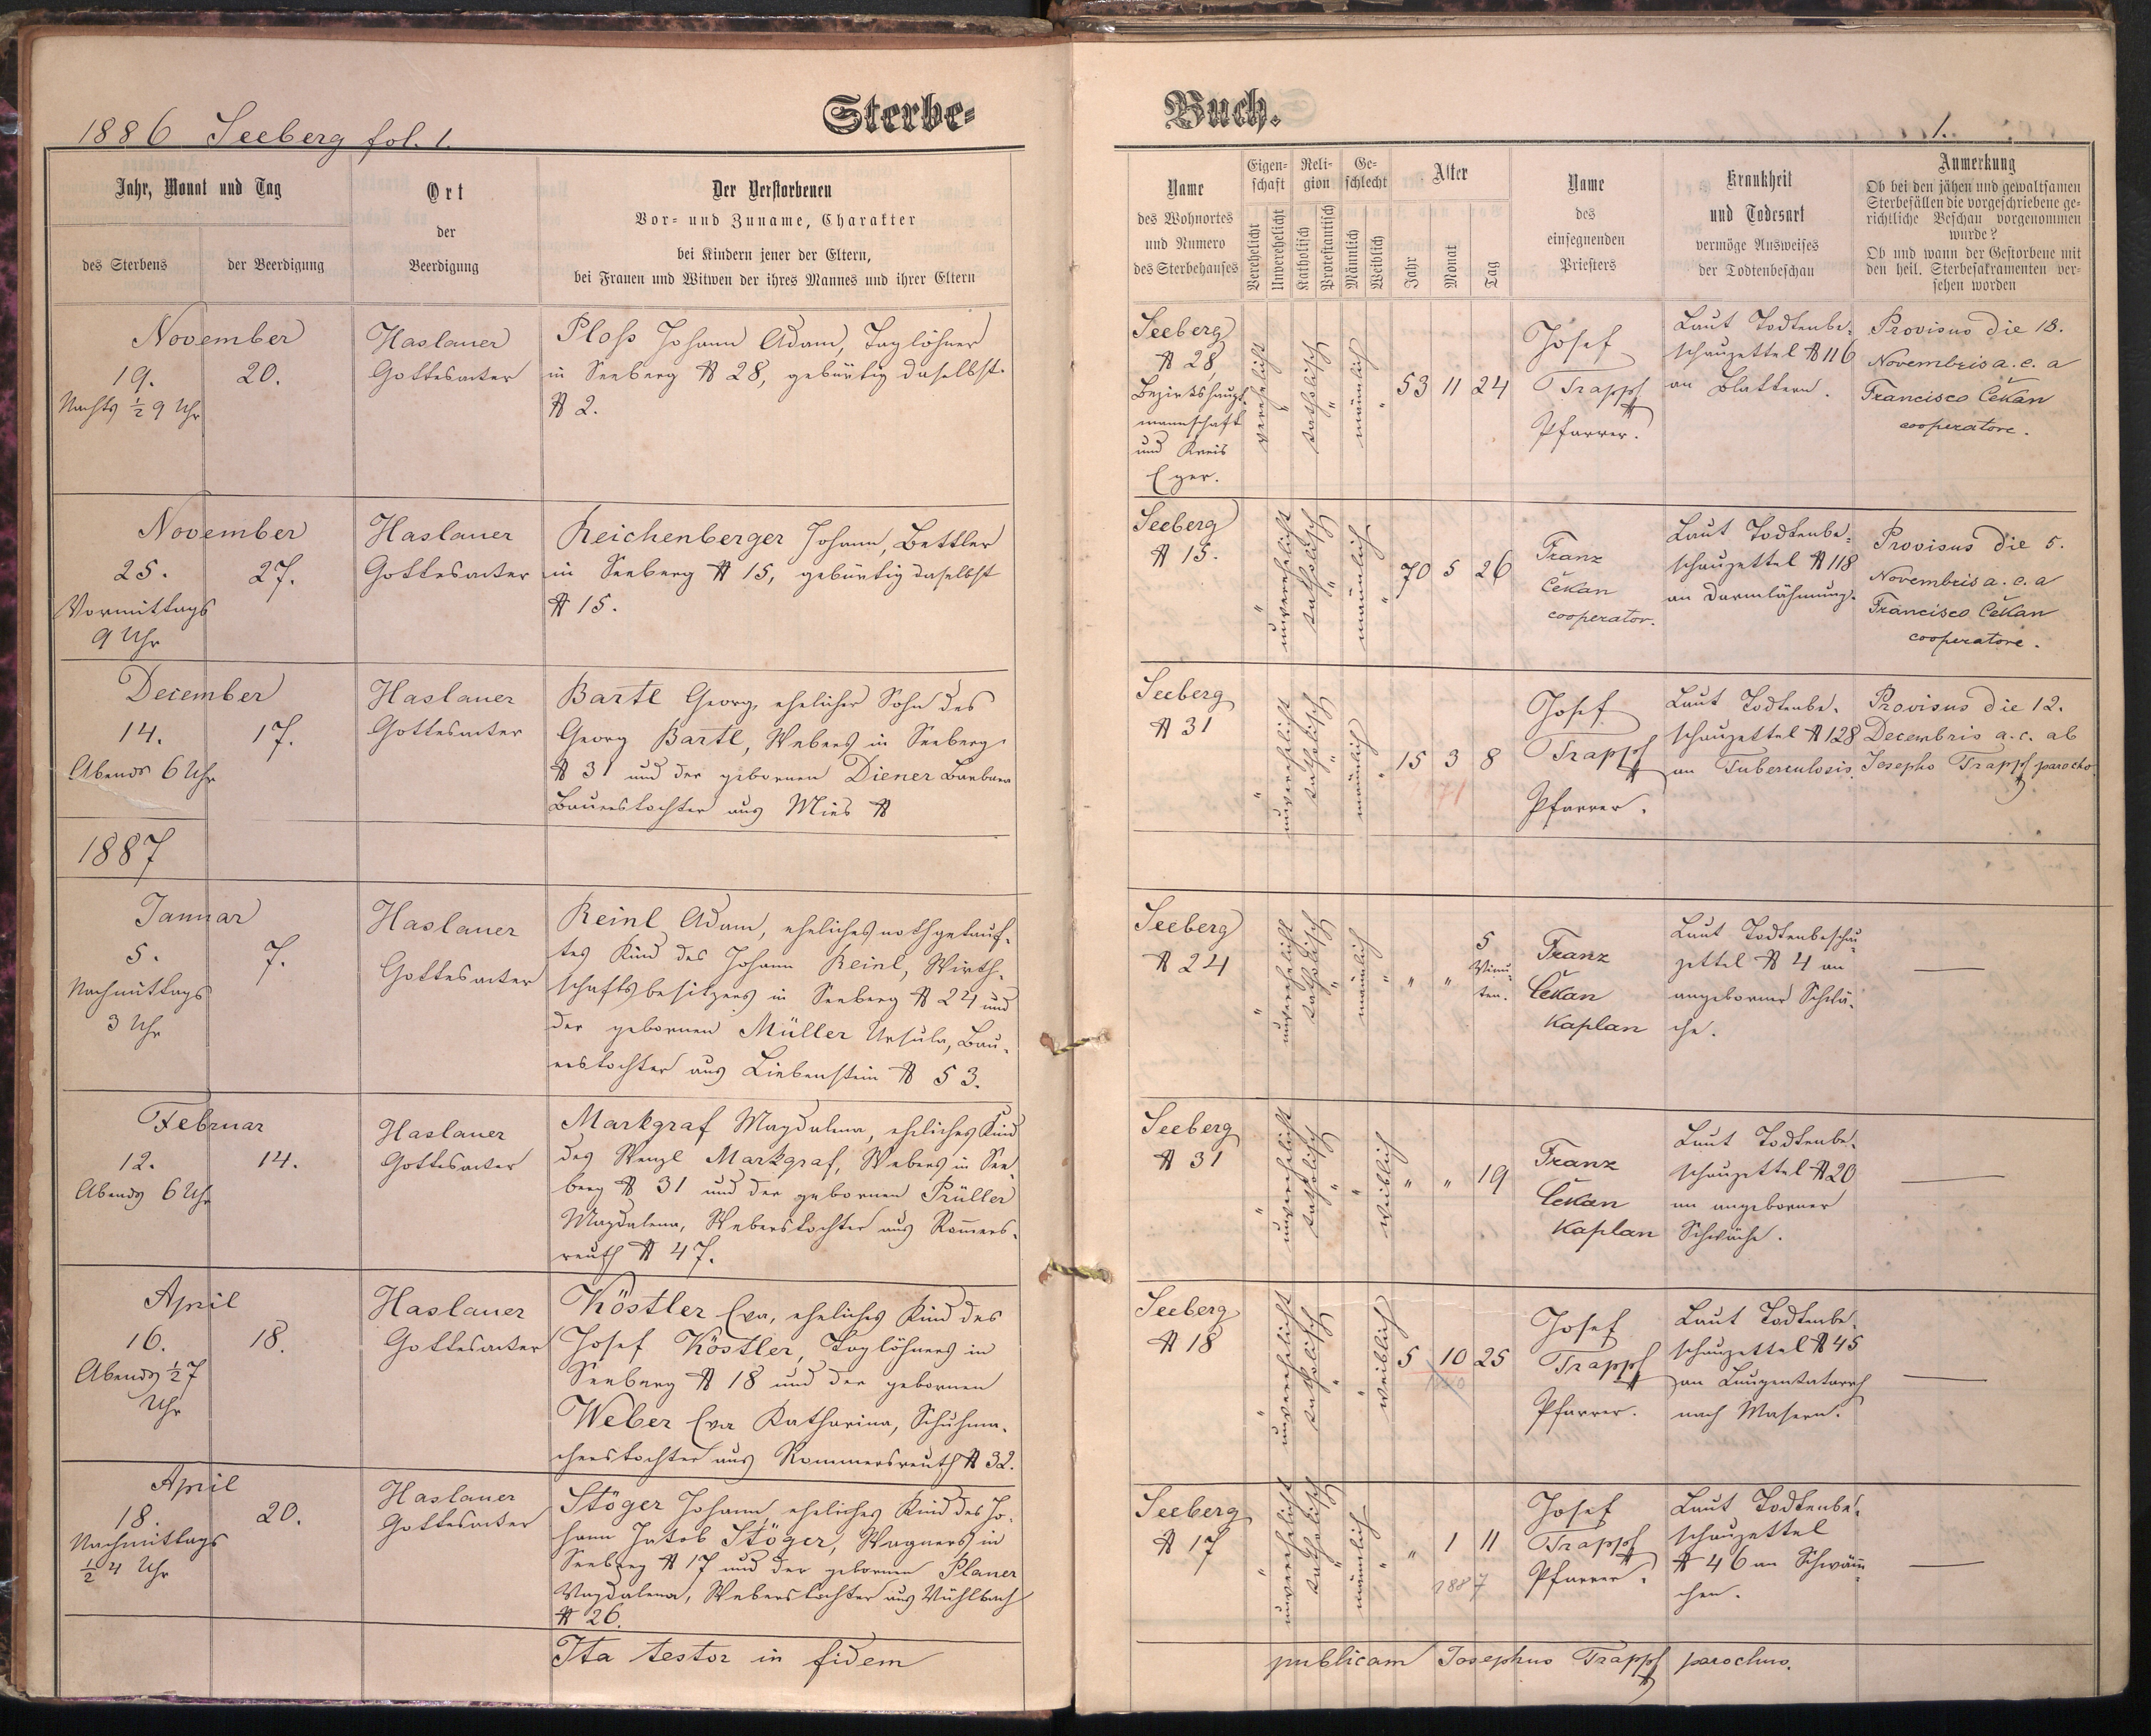 1886 Seeberg fol. 1.
Sterbe-
Buch.
1.
Jahr, Monat und Tag
des Sterbens
der Beerdigung
Ort
der
Beerdigung
Der Verstorbenen
Vor- und Zuname, Charakter
bei Kindern jener der Eltern,
bei Frauen und Witwen der ihres Mannes und ihrer Eltern
Name
des Wohnortes
und Numero
des Sterbehauses
Eigen-
schaft
Verehelicht
Unverehelicht
Reli-
gion
Katholisch
Protestantisch
Ge-
schlecht
Männlich
Weiblich
Alter
Jahr
Monat
Tag
Name
des
einsegnenden
Priesters
Krankheit
und Todesart
vermöge Ausweises
der Todtenbeschau
Anmerkung
Ob bei den jähen und gewaltsamen
Sterbefällen die vorgeschriebene ge-
richtliche Beschau vorgenommen
wurde?
Ob und wann der Gestorbene mit
den heil. Sterbesakramenten ver-
sehen worden
November
19.
20.
Nachts ½ 9 Uhr
Haslauer
Gottesacker
Ploß Johann Adam, Taglöhner
in Seeberg № 28, gebürtig daselbst
№ 2.
Seeberg
№ 28,
Bezirkshaupt-
mannschaft
und Kreis
Eger.
verehelicht
"
katholisch
"
männlich
"
53 11 24
Josef
Trappl
Pfarrer.
Laut Todtenbe-
schauzettel № 116
an Blattern.
Provisus die 18.
Novembris a. c. a
Francisco Čekan
cooperatore.
November
25.
27.
Vormittags
9 Uhr
Haslauer
Gottesacker
Reichenberger Johann, Bettler
in Seeberg № 15, gebürtig daselbst
№ 15.
Seeberg
№ 15.
"
unverehelicht
katholisch
"
männlich
"
70 5 26
Franz
Čekan
cooperator.
Laut Todtenbe-
schauzettel № 118
an Darmlähmung.
Provisus die 5.
Novembris a. c. a
Francisco Čekan
cooperatore.
December
14.
17.
Abends 6 Uhr
Haslauer
Gottesacker
Bartl Georg, ehelicher Sohn des
Georg Bartl, Webers in Seeberg
№ 31 und der gebornen Diener Barbara
Bauerstochter aus Mies №
Seeberg
№ 31
"
unverehelicht
katholisch
"
männlich
"
15 3 8
1871
Josef
Trappl
Pfarrer.
Laut Todtenbe-
schauzettel № 128
an Tuberculosis.
Provisus die 12.
Decembris a. c. ab
Josepho Trappl parocho.
1887
Januar
5.
7.
Nachmittags
3 Uhr
Haslauer
Gottesacker
Reinl Adam, eheliches nothgetauf-
tes Kind des Johann Reinl, Wirth-
schaftsbesitzers in Seeberg № 24 und
der gebornen Müller Ursula, Bau-
erstochter aus Liebenstein № 53.
Seeberg
№ 24
"
unverehelicht
katholisch
"
männlich
"
" "
5
Minu-
ten.
Franz
Čekan
Kaplan
Laut Todtenbeschau-
zettel № 4 an
angeborner Schwä-
che.
—
Februar
12.
14.
Abends 6 Uhr
Haslauer
Gottesacker
Markgraf Magdalena, eheliches Kind
des Wenzl Markgraf, Webers in See-
berg № 31 und der gebornen Prüller
Magdalena, Weberstochter aus Rom̅ers-
reuth № 47.
Seeberg
№ 31
"
unverehelicht
katholisch
"
"
weiblich
" " 19
Franz
Čekan
Kaplan
Laut Todtenbe-
schauzettel № 20
an angeborner
Schwäche.
—
April
16.
18.
Abends ½ 7
Uhr
Haslauer
Gottesacker
Köstler Eva, eheliches Kind des
Josef Köstler, Taglöhners in
Seeberg № 18 und der gebornen
Weber Eva Katharina, Schuhma-
cherstochter aus Rommersreuth № 32.
Seeberg
№ 18
"
unverehelicht
katholisch
"
"
weiblich
5 10 25
Josef
Trappl
Pfarrer.
Laut Todtenbe-
schauzettel № 45
an Lungenkatarrh
nach Masern.
—
April
18.
20.
Nachmittags
½ 4 Uhr
Haslauer
Gottesacker
Stöger Johann, eheliches Kind des Jo-
hann Jakob Stöger, Wagners in
Seeberg № 17 und der gebornen Planer
Magdalena, Weberstochter aus Mühlbach
№ 26.
Seeberg
№ 17
"
unverehelicht
katholisch
"
männlich
"
" 1 11
1887
Josef
Trappl
Pfarrer.
Laut Todtenbe-
schauzettel
№ 46 an Schwäm̅-
chen.
—
Ita testor in fidem
publicam Josephus Trappl parochus.